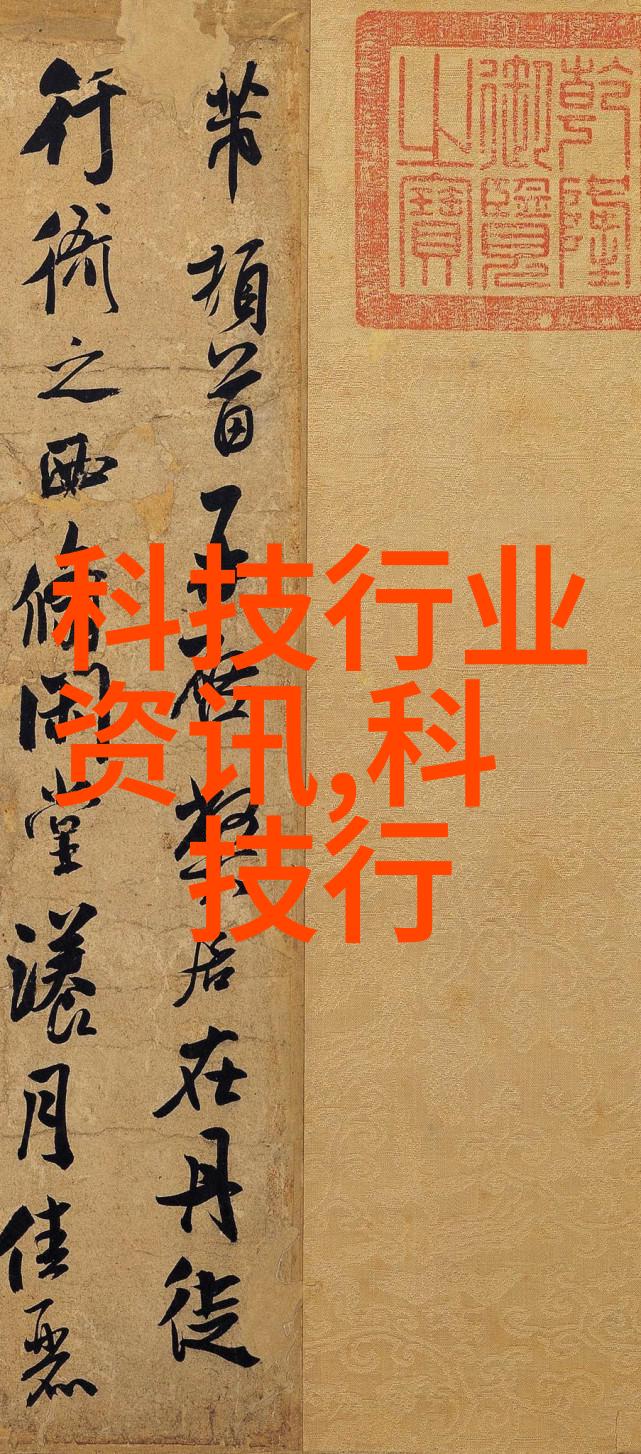 乾隆
御覽
之寶
芾頓首再啓弊居在丹徒
行衙之西脩閒堂漾月佳麗
科技行业
资讯,科
技行